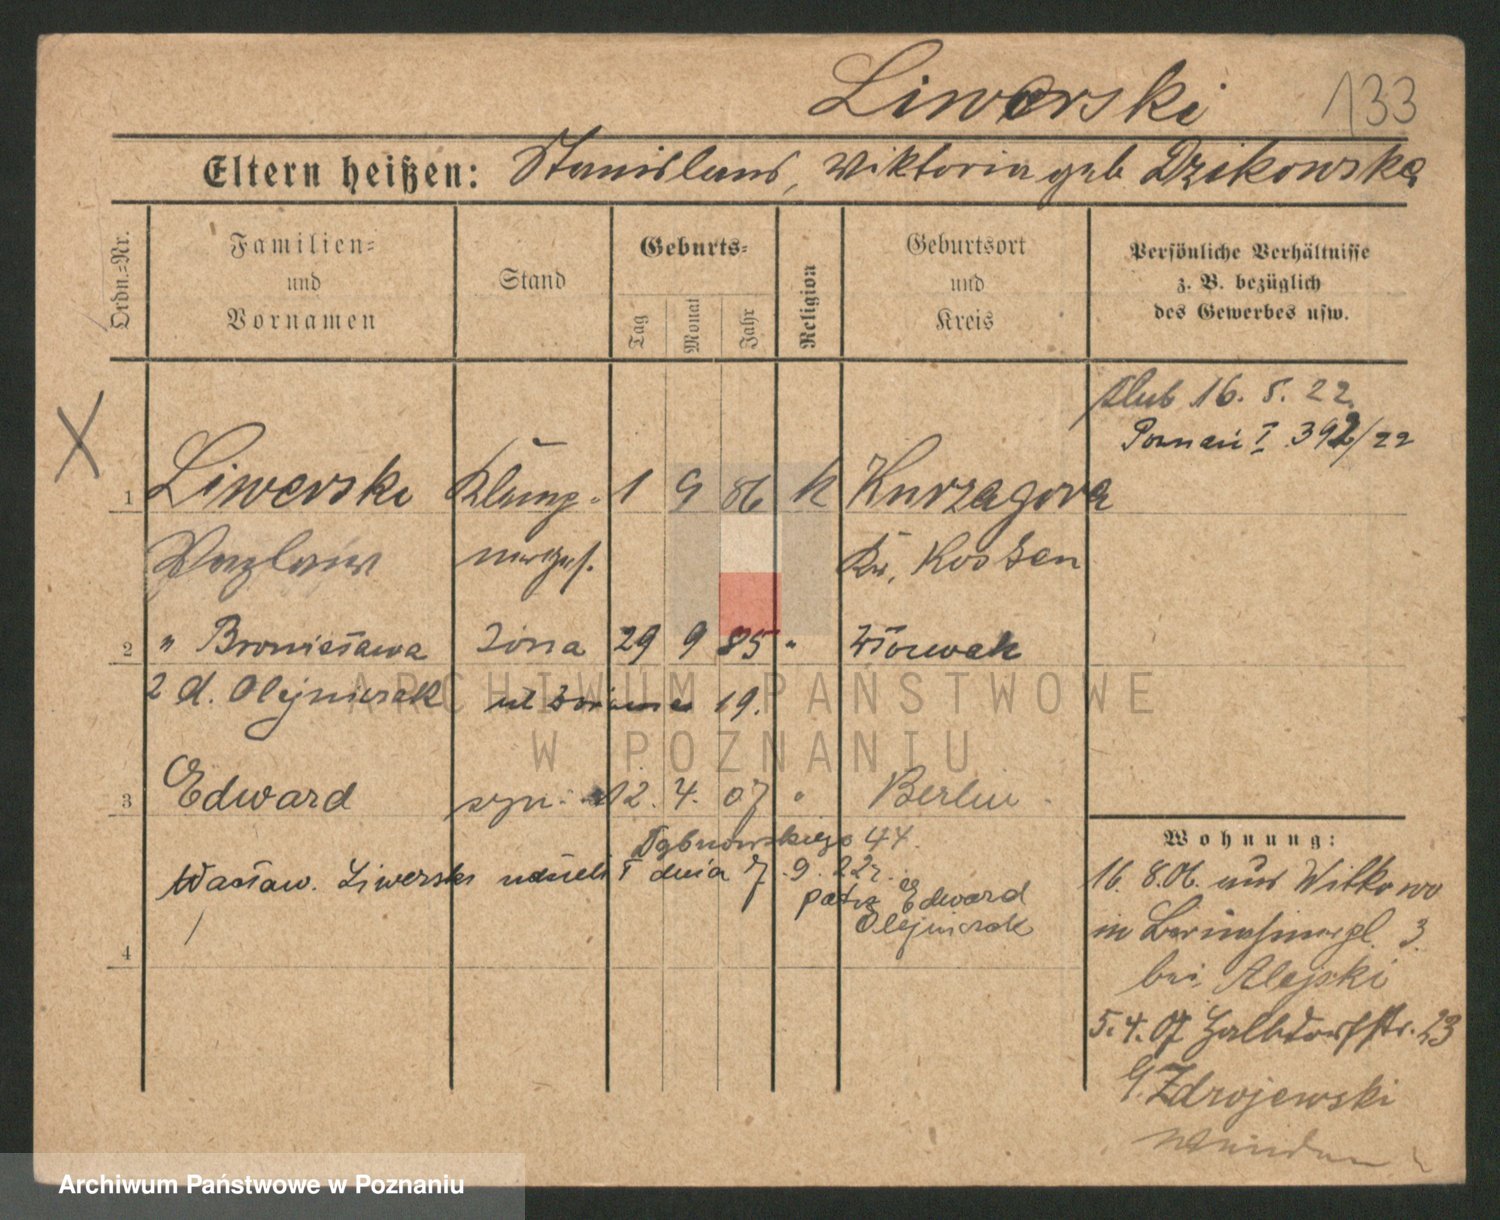 Liwerski 133
Eltern heißen: Stanislaus, Wiktoria geb Dzikowska
Ordn.=Nr.
Familien= und Vornamen
Stand
Geburts=
Tag Monat Jahr
Religion
Geburtsort und Kreis
Persönliche Verhältnisse z. B. bezüglich des Gewerbes usw.
ślub 16. 5. 22.
Poznań I 392/22
X
1 Liwerski Klemp- 1 9 86 k Kurzagora
nerges. Kr. Kosten
2 " Bronisława żona 29 9 85 "
2 d. Olejniczak 19.
3 Edward syn 12. 4. 07 " Berlin
Dąbrowskiego 44.
Wacław Liwerski dnia 7. 9. 22r.
patrz Edward
Olejniczak
4
Wohnung:
16. 8. 06. aus Witkowo
in 3.
bei Alejski
5. 4. 07 Halbdorfstr. 23
Zdrojewski
wenden
ARCHIWUM PAŃSTWOWE
W POZNANIU
Archiwum Państwowe w Poznaniu